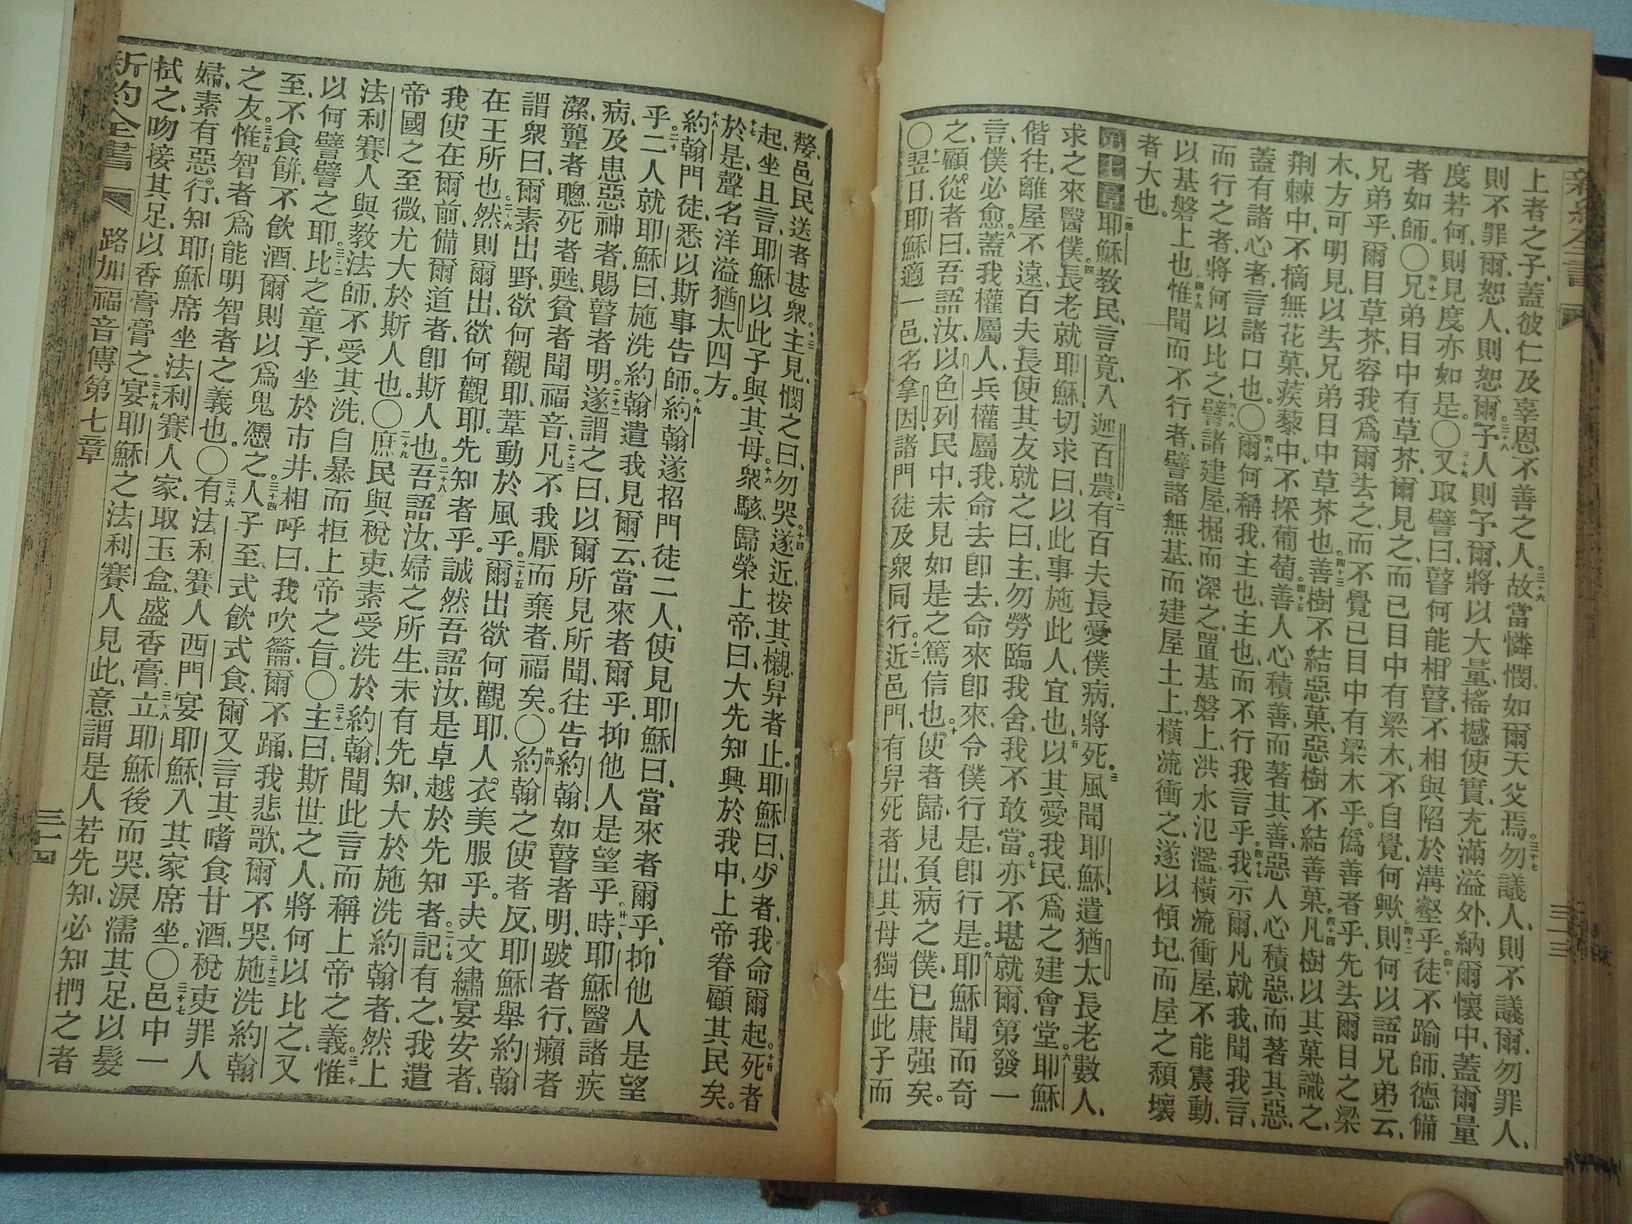 上者之子、蓋彼仁及辜恩不善之人、三十六故當憐憫、如爾天父焉、三十七勿議人、則不議爾、勿罪人、
則不罪爾、恕人、則恕爾、三十八予人、則予爾、將以大量、搖撼使實、充滿溢外、納爾懷中、蓋爾量
度若何、則見度亦如是。〇三十九又取譬曰、瞽何能相瞽、不相與陷於溝壑乎、四十徒不踰師、德備
者如師。〇四十一兄弟目中有草芥、爾見之、而己目中有梁木、不自覺、何歟、四十二則何以語兄弟云、
兄弟乎、爾目草芥、容我爲爾去之、而不覺己目中有梁木乎、僞善者乎、先去爾目之梁
木、方可明見、以去兄弟目中草芥也、四十三善樹不結惡菓、惡樹不結善菓、四十四凡樹以其菓識之、
荆棘中、不摘無花菓、蒺藜中、不採葡萄、四十五善人心積善、而著其善、惡人心積惡、而著其惡、
蓋有諸心者、言諸口也。〇四十六爾何稱我主也主也、而不行我言乎、四十七我示爾、凡就我、聞我言、
而行之者、將何以比之、四十八譬諸建屋、掘而深之、置基磐上、洪水氾濫、橫流衝屋、不能震動、
以基磐上也、四十九惟聞而不行者、譬諸無基、而建屋土上、橫流衝之、遂以傾圮、而屋之頹壞
者大也。
第七章 一耶穌教民、言竟、入迦百農、二有百夫長愛僕病、將死、三風聞耶穌、遣猶太長老數人、
求之來醫僕、四長老就耶穌、切求曰、以此事施此人、宜也、五以其愛我民、爲之建會堂、六耶穌
偕往、離屋不遠、百夫長使其友就之曰、主勿勞、臨我舍、我不敢當、七亦不堪就爾、第發一
言、僕必愈、八蓋我權屬人、兵權屬我、命去卽去、命來卽來、令僕行是、卽行是、九耶穌聞而奇
之、顧從者曰、吾語汝、以色列民中、未見如是之篤信也、十使者歸、見負病之僕、已康强矣。
〇十一翌日、耶穌適一邑、名拿因、諸門徒及衆同行、十二近邑門、有舁死者出、其母獨生此子、而
嫠、邑民送者甚衆、十三主見、憫之曰、勿哭、十四遂近按其櫬、舁者止、耶穌曰、少者、我命爾起、十五死者
起、坐且言、耶穌以此子與其母、十六衆駭、歸榮上帝曰、大先知興於我中、上帝眷顧其民矣。
十七於是聲名洋溢猶太四方。
十八約翰門徒、悉以斯事告師、十九約翰遂招門徒二人、使見耶穌曰、當來者爾乎、抑他人是望
乎、二十二人就耶穌曰、施洗約翰遣我見爾云、當來者爾乎、抑他人是望乎、廿一時耶穌醫諸疾
病、及患惡神者、賜瞽者明、二十二遂謂之曰、以爾所見所聞、往告約翰、如瞽者明、跛者行、癩者
潔、聾者聰、死者甦、貧者聞福音、二十三凡不我厭而棄者、福矣。〇廿四約翰之使者反、耶穌舉約翰
謂衆曰、爾素出野、欲何觀耶、葦動於風乎、二十五爾出欲何觀耶、人衣美服乎、夫文繡宴安者、
在王所也、二十六然則爾出、欲何觀耶、先知者乎、誠然、吾語汝、是卓越於先知者、二十七記有之、我遣
我使、在爾前、備爾道者、卽斯人也、二十八吾語汝、婦之所生、未有先知大於施洗約翰者、然上
帝國之至微、尤大於斯人也。〇二十九庶民與稅吏、素受洗於約翰、聞此言、而稱上帝之義、三十惟
法利賽人與教法師、不受其洗、自暴而拒上帝之旨。〇三十一主曰、斯世之人、將何以比之、又
以何譬譬之耶、三十二比之童子、坐於市井、相呼曰、我吹籥、爾不踊、我悲歌、爾不哭、三十三施洗約翰
至、不食餅、不飮酒、爾則以爲鬼憑之、三十四人子至、式飮式食、爾又言其嗜食甘酒、稅吏罪人
之友、三十五惟智者爲能明智者之義也。〇三十六有法利賽人西門、宴耶穌、入其家席坐。〇三十七邑中一
婦、素有惡行、知耶穌席坐法利賽人家、取玉盒盛香膏、三十八立耶穌後而哭、淚濡其足、以髮
拭之、吻接其足、以香膏膏之、三十九宴耶穌之法利賽人見此、意謂是人若先知、必知捫之者
新約全書 路加福音傳第七章 三十四